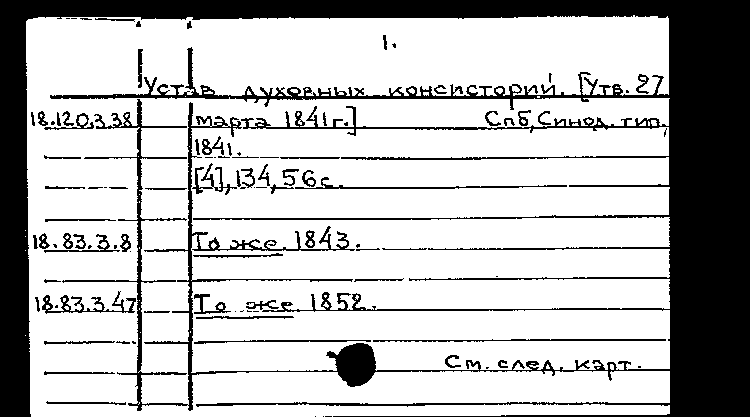 1.
Устав духовных консисторий. [Утв. 27
18.120.3.38 марта 1841 г.] Спб, Синод. тип.,
1841.
[4], 134, 56 с.
18.83.3.8 То же. 1843.
18.83.3.47 То же. 1852.
См. след. карт.